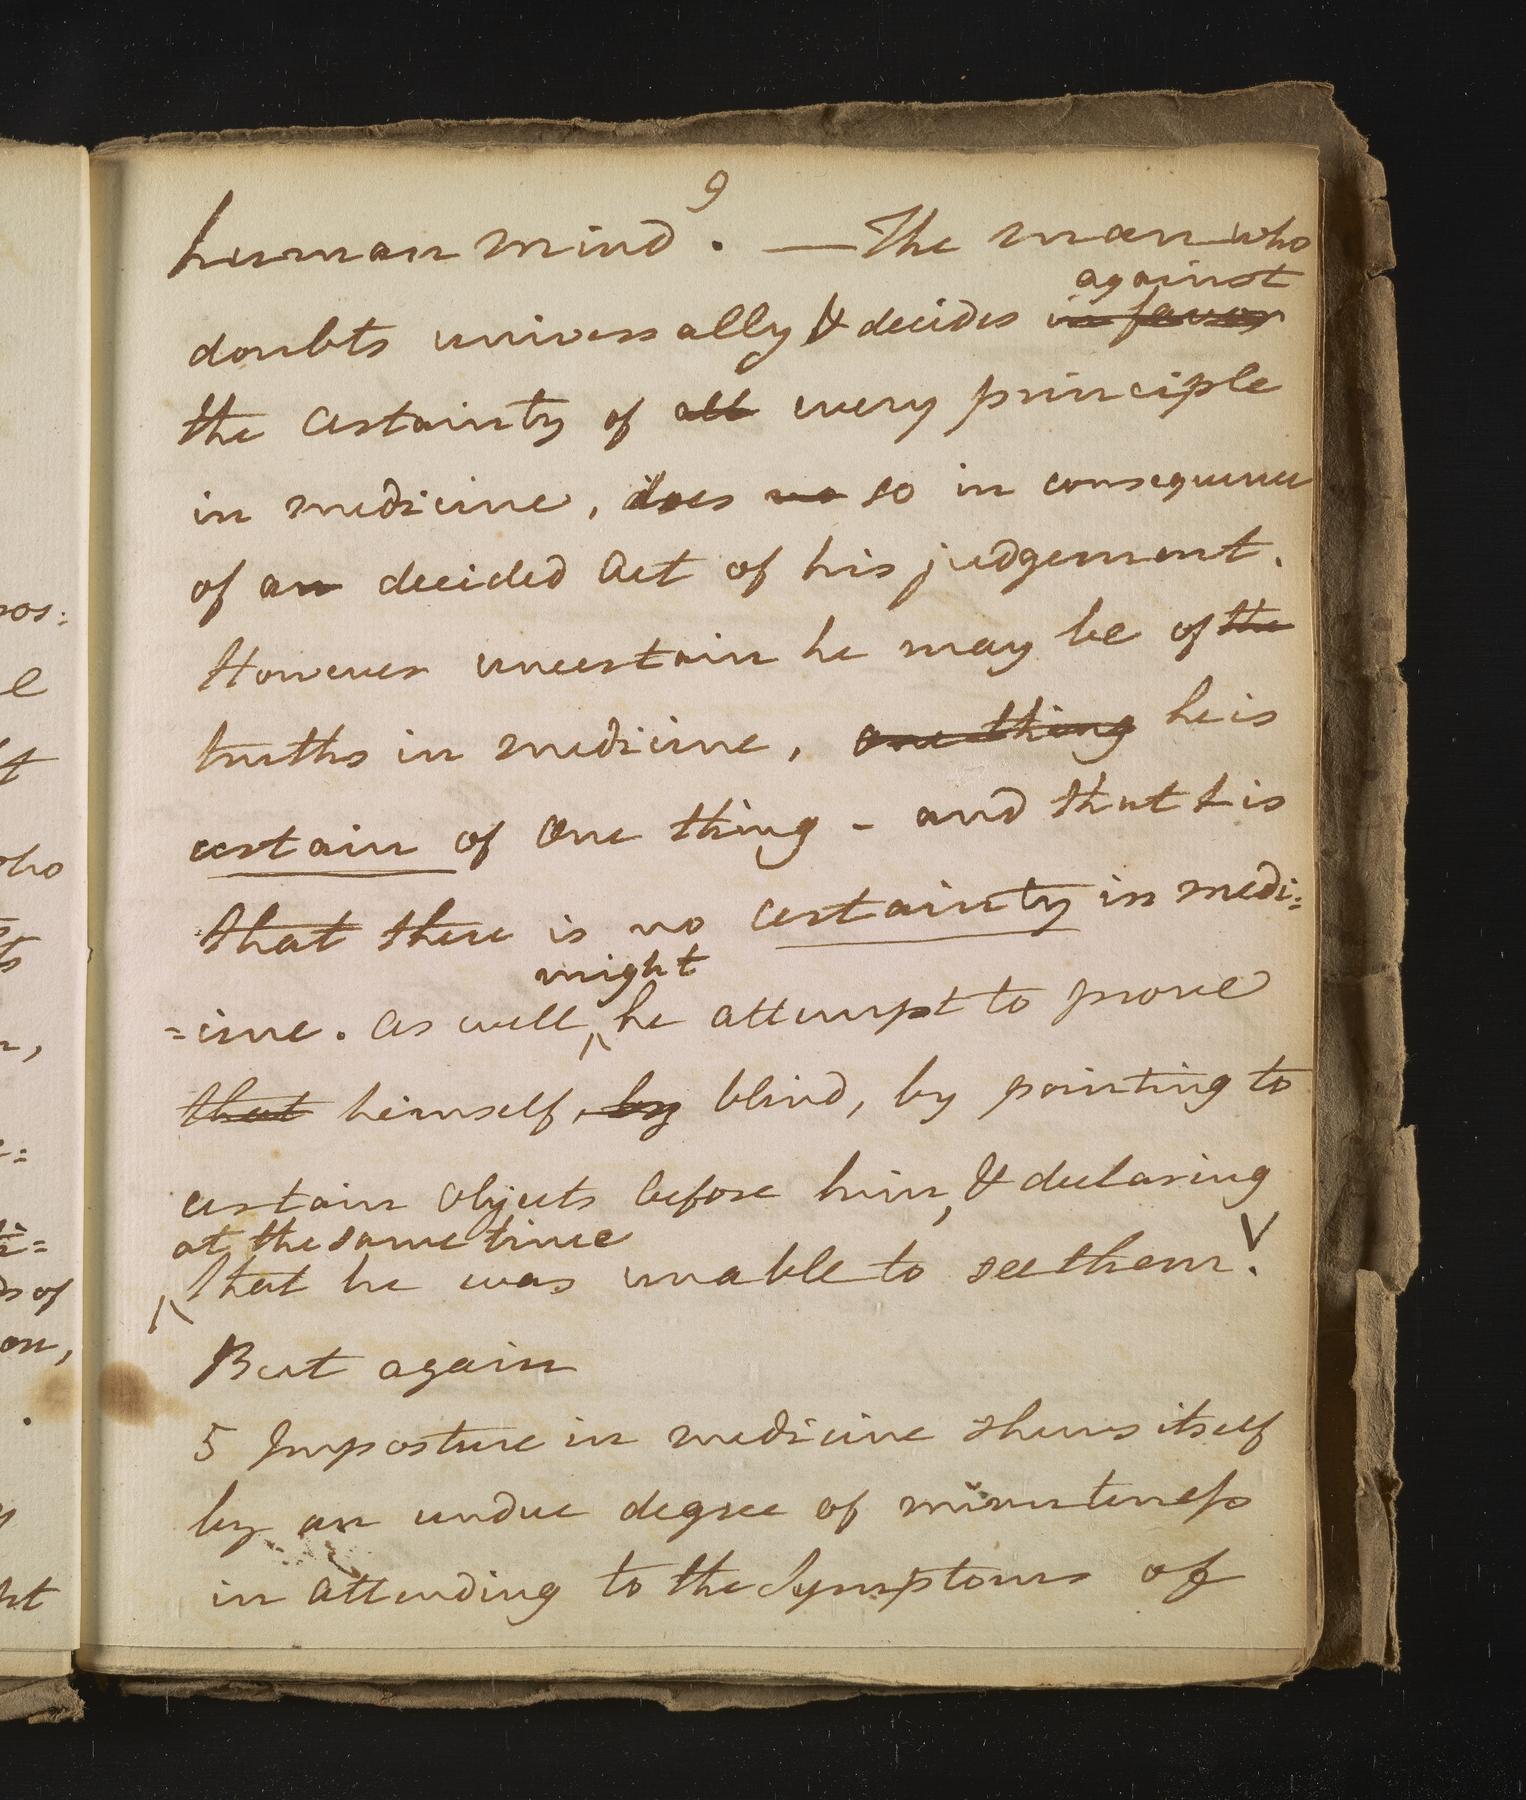 9
human mind. — The man who
against
doubts universally & decides in favor
the certainty of all every principle
in medicine, does no so in consequence
of an decided act of his judgement.
However uncertain he may be of the
truths in medicine, one thing he is
certain of one thing - and that is
that there is no certainty in medi:
might
=cine. as well ^ he attempt to prove
that himself, by blind, by pointing to
certain objects before him, & declaring
at the same time
^ that he was unable to see them. V
But again
5 Imposture in medicine shews itself
by an undue degree of minuteness
in attending to the Symptoms of
pos:
e
t
who
ts
n,
:=
ti=
ds of
on,
.
y
ht